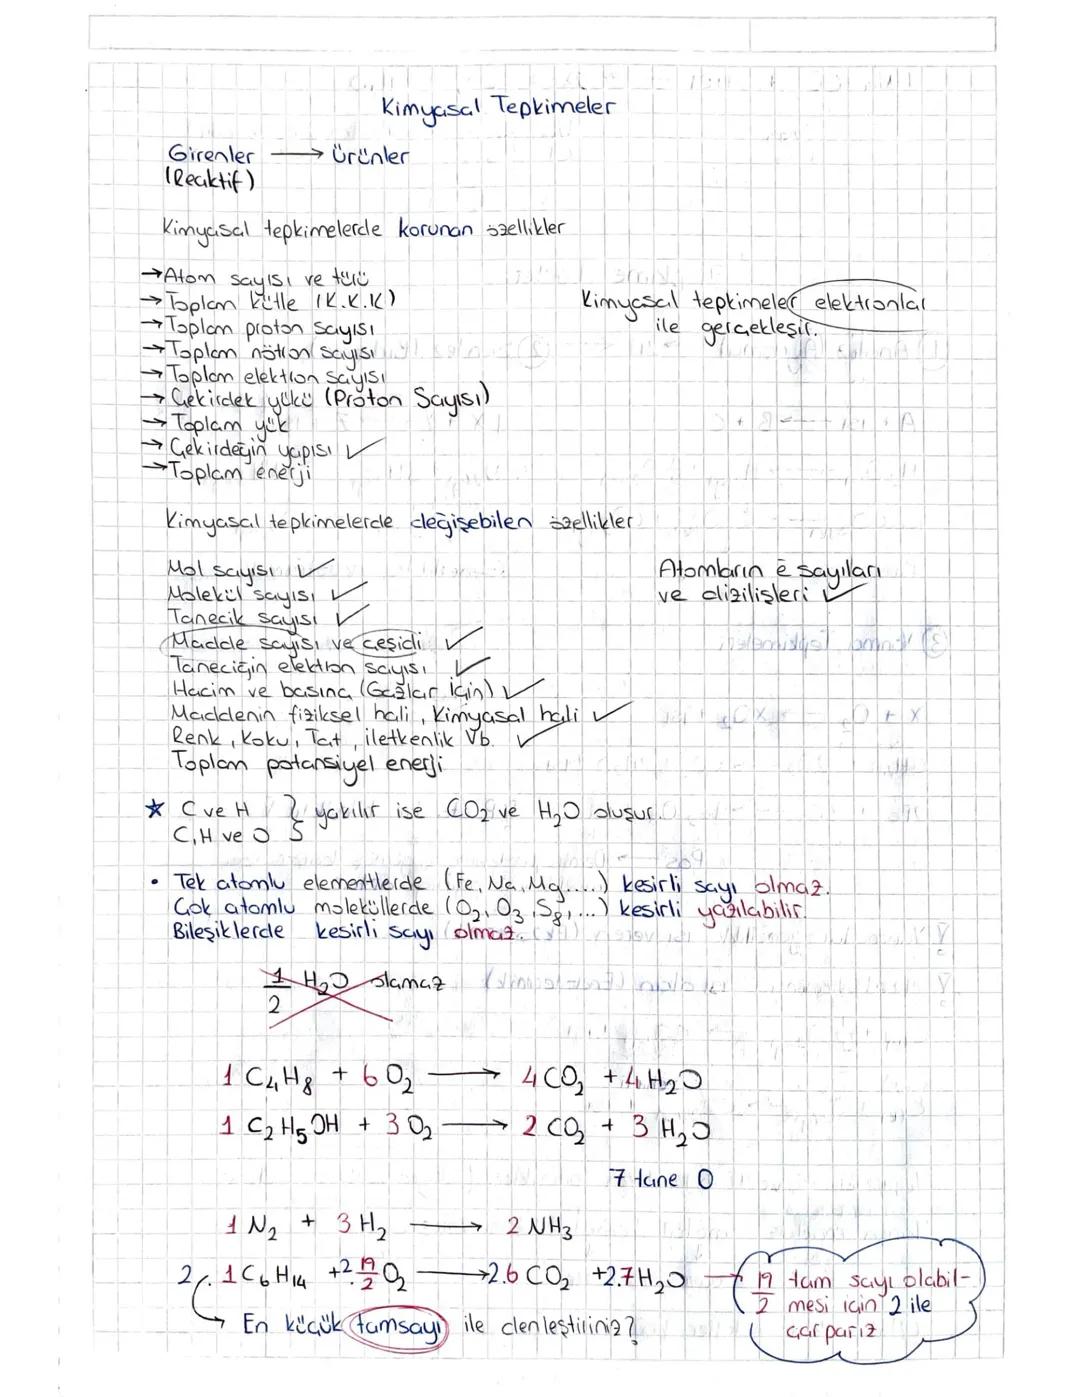 Kimyasal Tepkimeler
Girenler → Ürünler
(Reaktif)
Kimyasal tepkimelerde korunan özellikler
→Atom sayısı ve türü
→Toplam kütle (K.K.K)
→Toplam proton sayısı
→Toplam nötron sayısı
→Toplam elektron sayısı
→Çekirdek yükü (Proton Sayısı)
→Toplam yük
→Çekirdeğin yapısı ✓
→Toplam enerji
Kimyasal tepkimeler elektronlar
ile gerçekleşir.
Kimyasal tepkimelerde değişebilen özellikler
Mol sayısı ✓
Molekül sayısı ✓
Tanecik sayısı ✓
Madde sayısı ve çeşidi ✓
Taneciğin elektron sayısı ✓
Hacim ve basınç (Gazlar için) ✓
Maddenin fiziksel hali, Kimyasal hali ✓
Renk, Koku, Tat, iletkenlik Vb. ✓
Toplam potansiyel enerji
Atomların ē sayıları
ve dizilişleri ✓
★ C ve H } yakılır ise CO₂ ve H₂O oluşur.
C, H ve O
• Tek atomlu elementlerde (Fe, Na, Mg.....) kesirli sayı olmaz.
Çok atomlu moleküllerde (O₂, O₃, S₈, ...) kesirli yazılabilir.
Bileşiklerde kesirli sayı olmaz.
1/2 H₂O olamaz
1 C₄H₈ + 6 O₂ → 4 CO₂ + 4 H₂O
1 C₂H₅OH + 3 O₂ → 2 CO₂ + 3 H₂O
7 tane O
1 N₂ + 3 H₂ → 2 NH₃
2/. 1 C₆H₁₄ + 2. 19/2 O₂ → 2.6 CO₂ + 2.7 H₂O → 19/2 tam sayı olabil-
mesi için 2 ile
çarparız
En küçük tamsayı ile denleştiriniz?